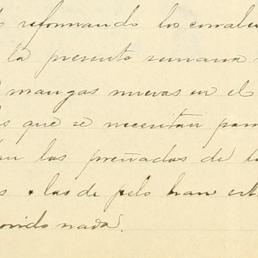 reformando los corrales
la presente semana
mangas nuevas en el
que se necesitan para
las preñadas de la
las de pelo han
nada.